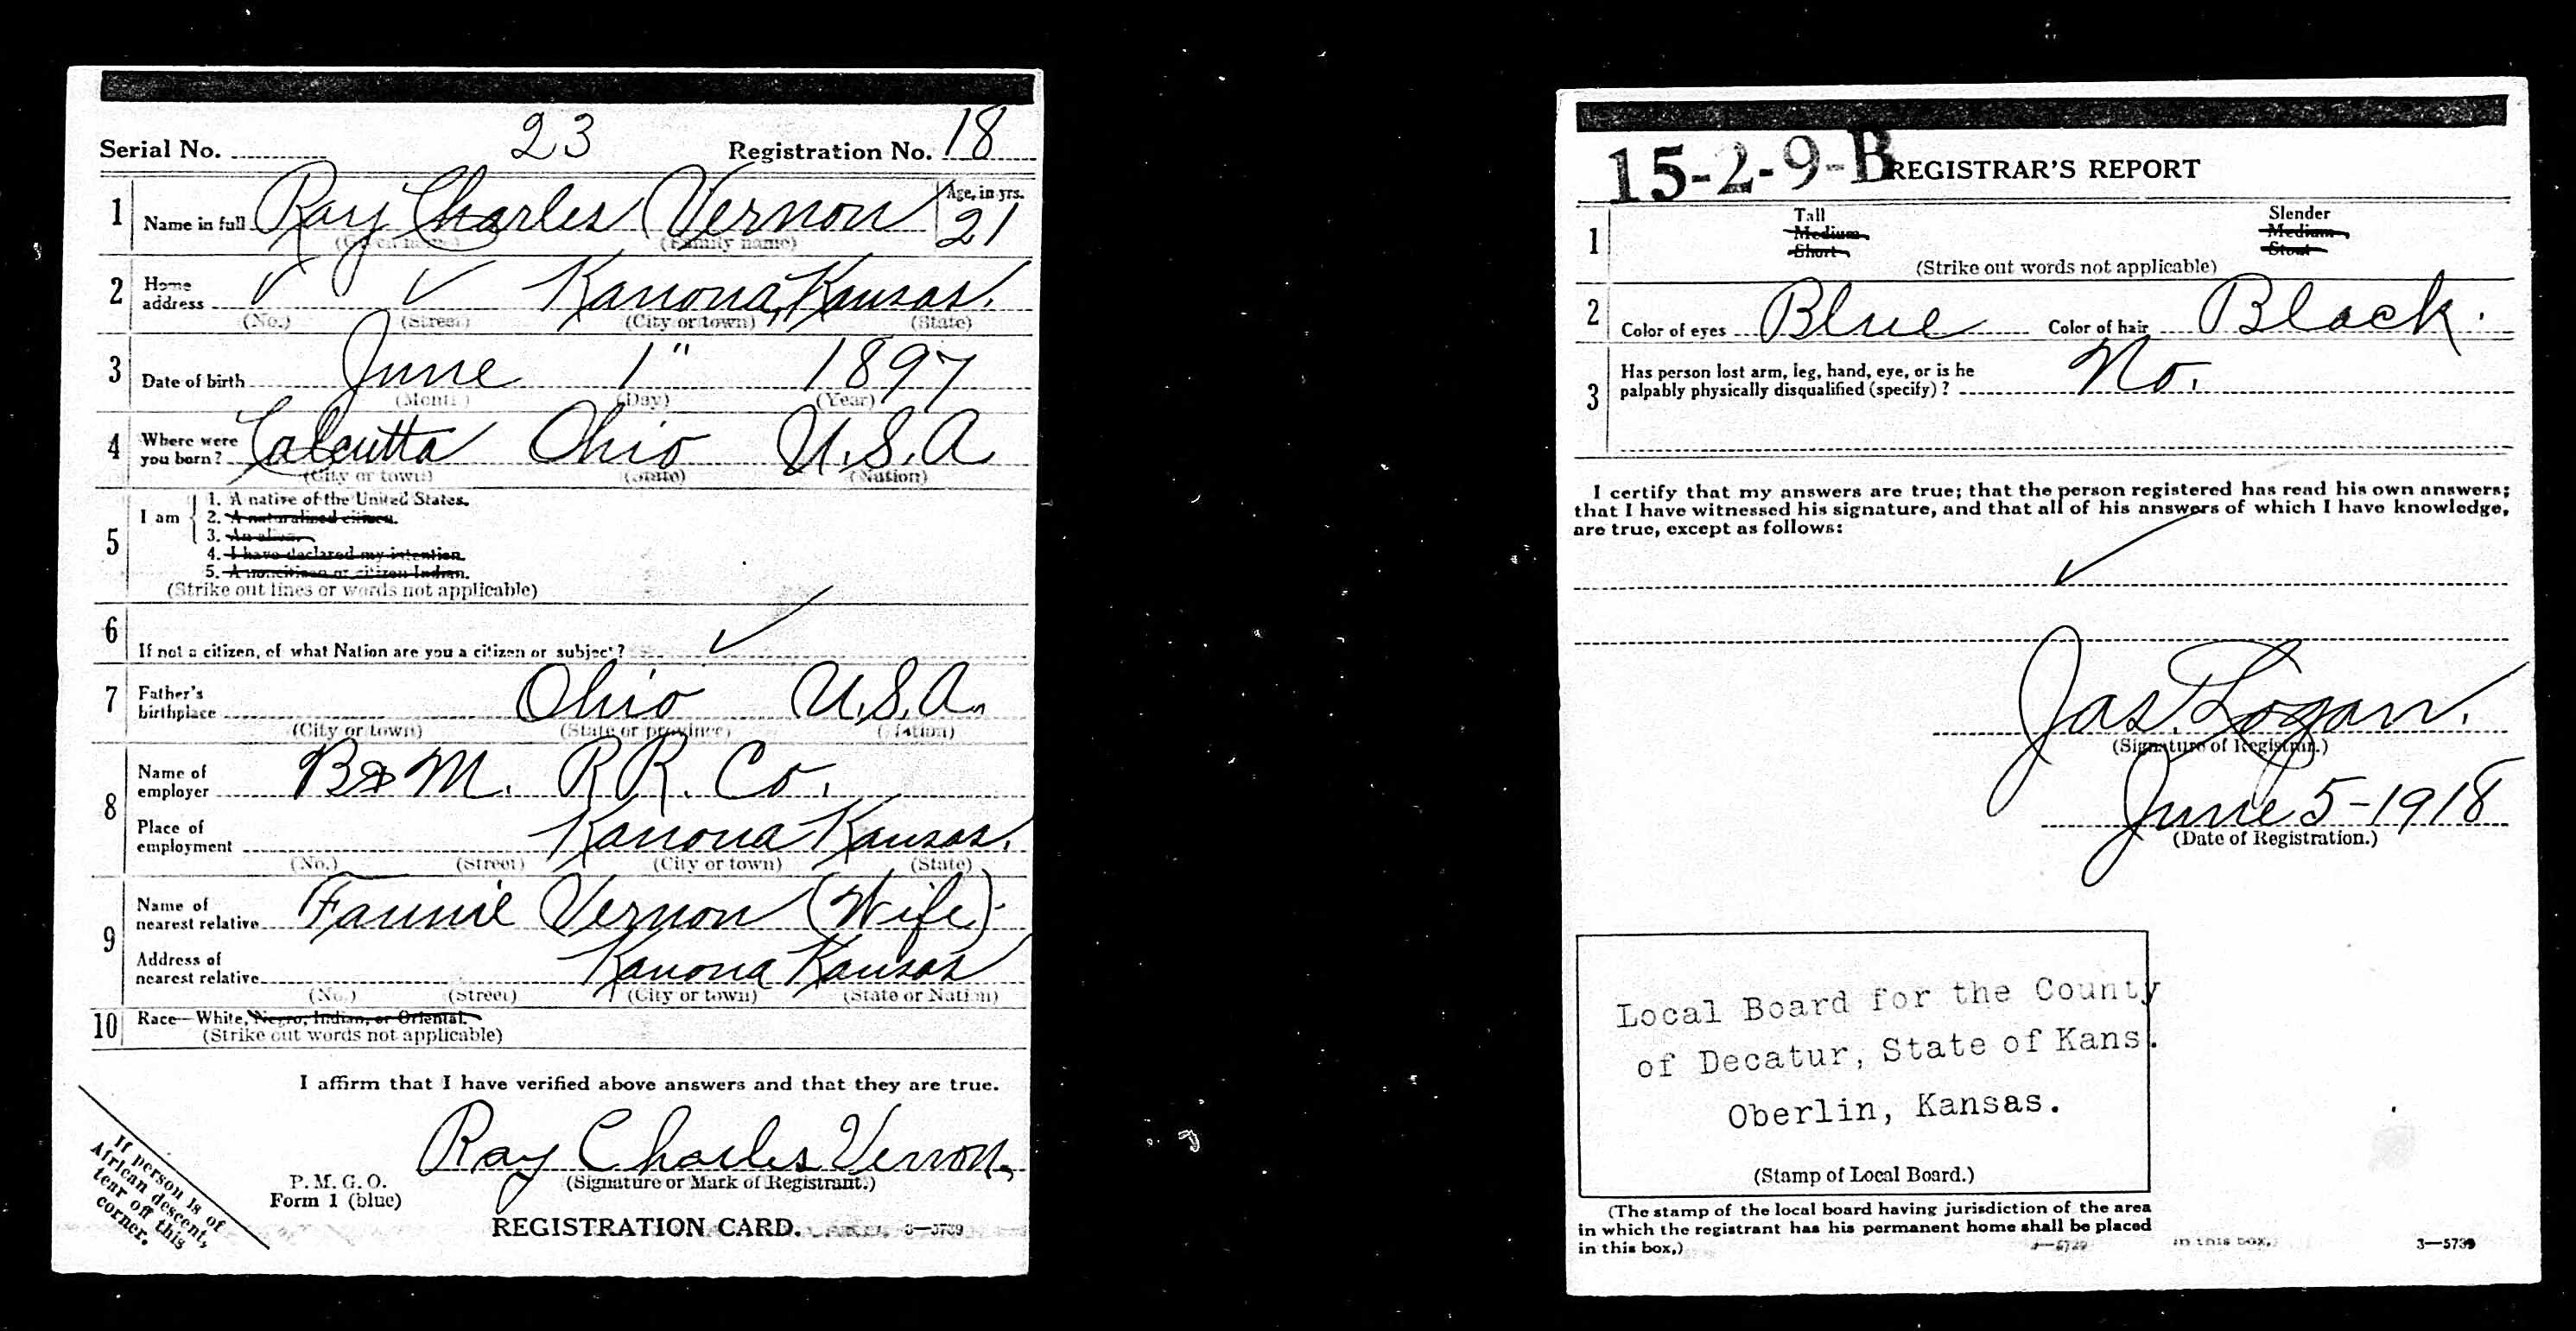 Serial No. 23 Registration No. 18
1 Name in full Ray Charles Vernon Age, in yrs. 21
(Given name) (Family name)
2 Home address ✓ ✓ Kanona, Kansas.
(No.) (Street) (City or town) (State)
3 Date of birth June 1" 1897
(Month) (Day) (Year)
4 Where were you born? Calcutta Ohio U.S.A
(City or town) (State) (Nation)
5 I am
1. A native of the United States.
2. A naturalized citizen.
3. An alien.
4. I have declared my intention.
5. A noncitizen or citizen Indian.
(Strike out lines or words not applicable)
6 If not a citizen, of what Nation are you a citizen or subject? ✓
7 Father's birthplace Ohio U.S.A.
(City or town) (State or province) (Nation)
8 Name of employer B & M. R R. Co.
Place of employment Kanona Kansas.
(No.) (Street) (City or town) (State)
9 Name of nearest relative Fannie Vernon (Wife)
Address of nearest relative Kanona Kansas
(No.) (Street) (City or town) (State or Nation)
10 Race—White, Negro, Indian, or Oriental.
(Strike out words not applicable)
I affirm that I have verified above answers and that they are true.
Ray Charles Vernon,
(Signature or Mark of Registrant.)
P. M. G. O.
Form 1 (blue)
REGISTRATION CARD. 3—5739
If person is of
African descent,
tear off this
corner.
15-2-9-B REGISTRAR'S REPORT
1 Tall Slender
Medium Medium
Short Stout
(Strike out words not applicable)
2 Color of eyes Blue Color of hair Black.
3 Has person lost arm, leg, hand, eye, or is he
palpably physically disqualified (specify)? No.
I certify that my answers are true; that the person registered has read his own answers;
that I have witnessed his signature, and that all of his answers of which I have knowledge,
are true, except as follows:
✓
Jas. Logan.
(Signature of Registrar.)
June 5-1918
(Date of Registration.)
Local Board for the County
of Decatur, State of Kans.
Oberlin, Kansas.
(Stamp of Local Board.)
(The stamp of the local board having jurisdiction of the area
in which the registrant has his permanent home shall be placed
in this box.)
3—5739 in this box.) 3—5739